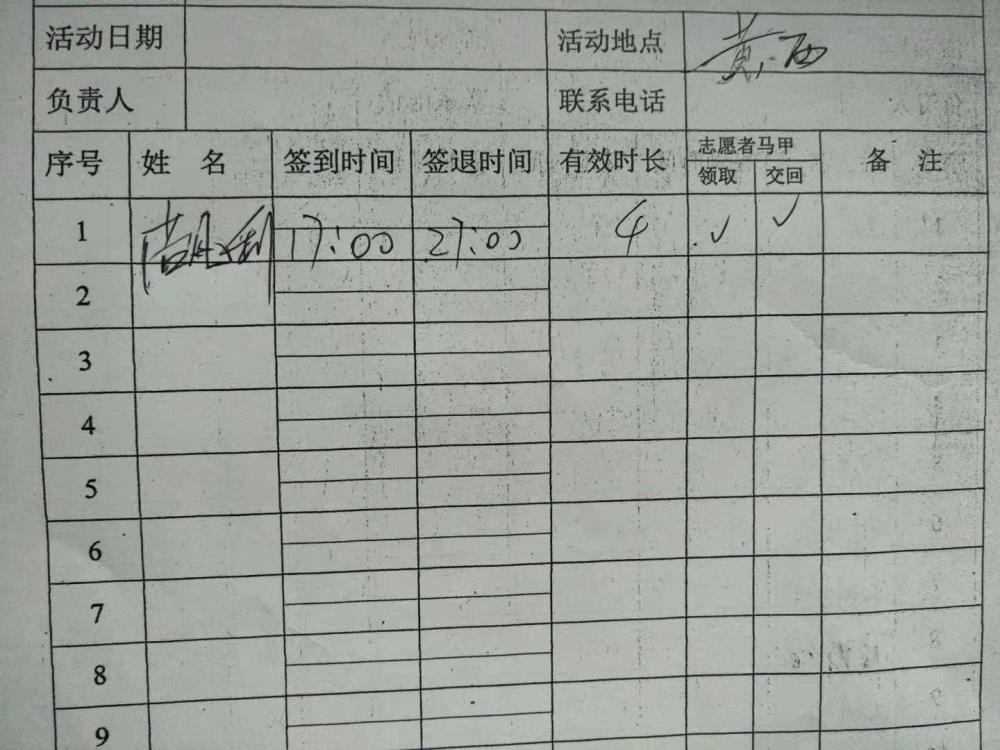 活动日期 活动地点 黄西
负责人 联系电话
序号 姓 名 签到时间 签退时间 有效时长 志愿者马甲 备 注
领取 交回
1 17:00 27:00 4 ✓ ✓
2
3
4
5
6
7
8
9